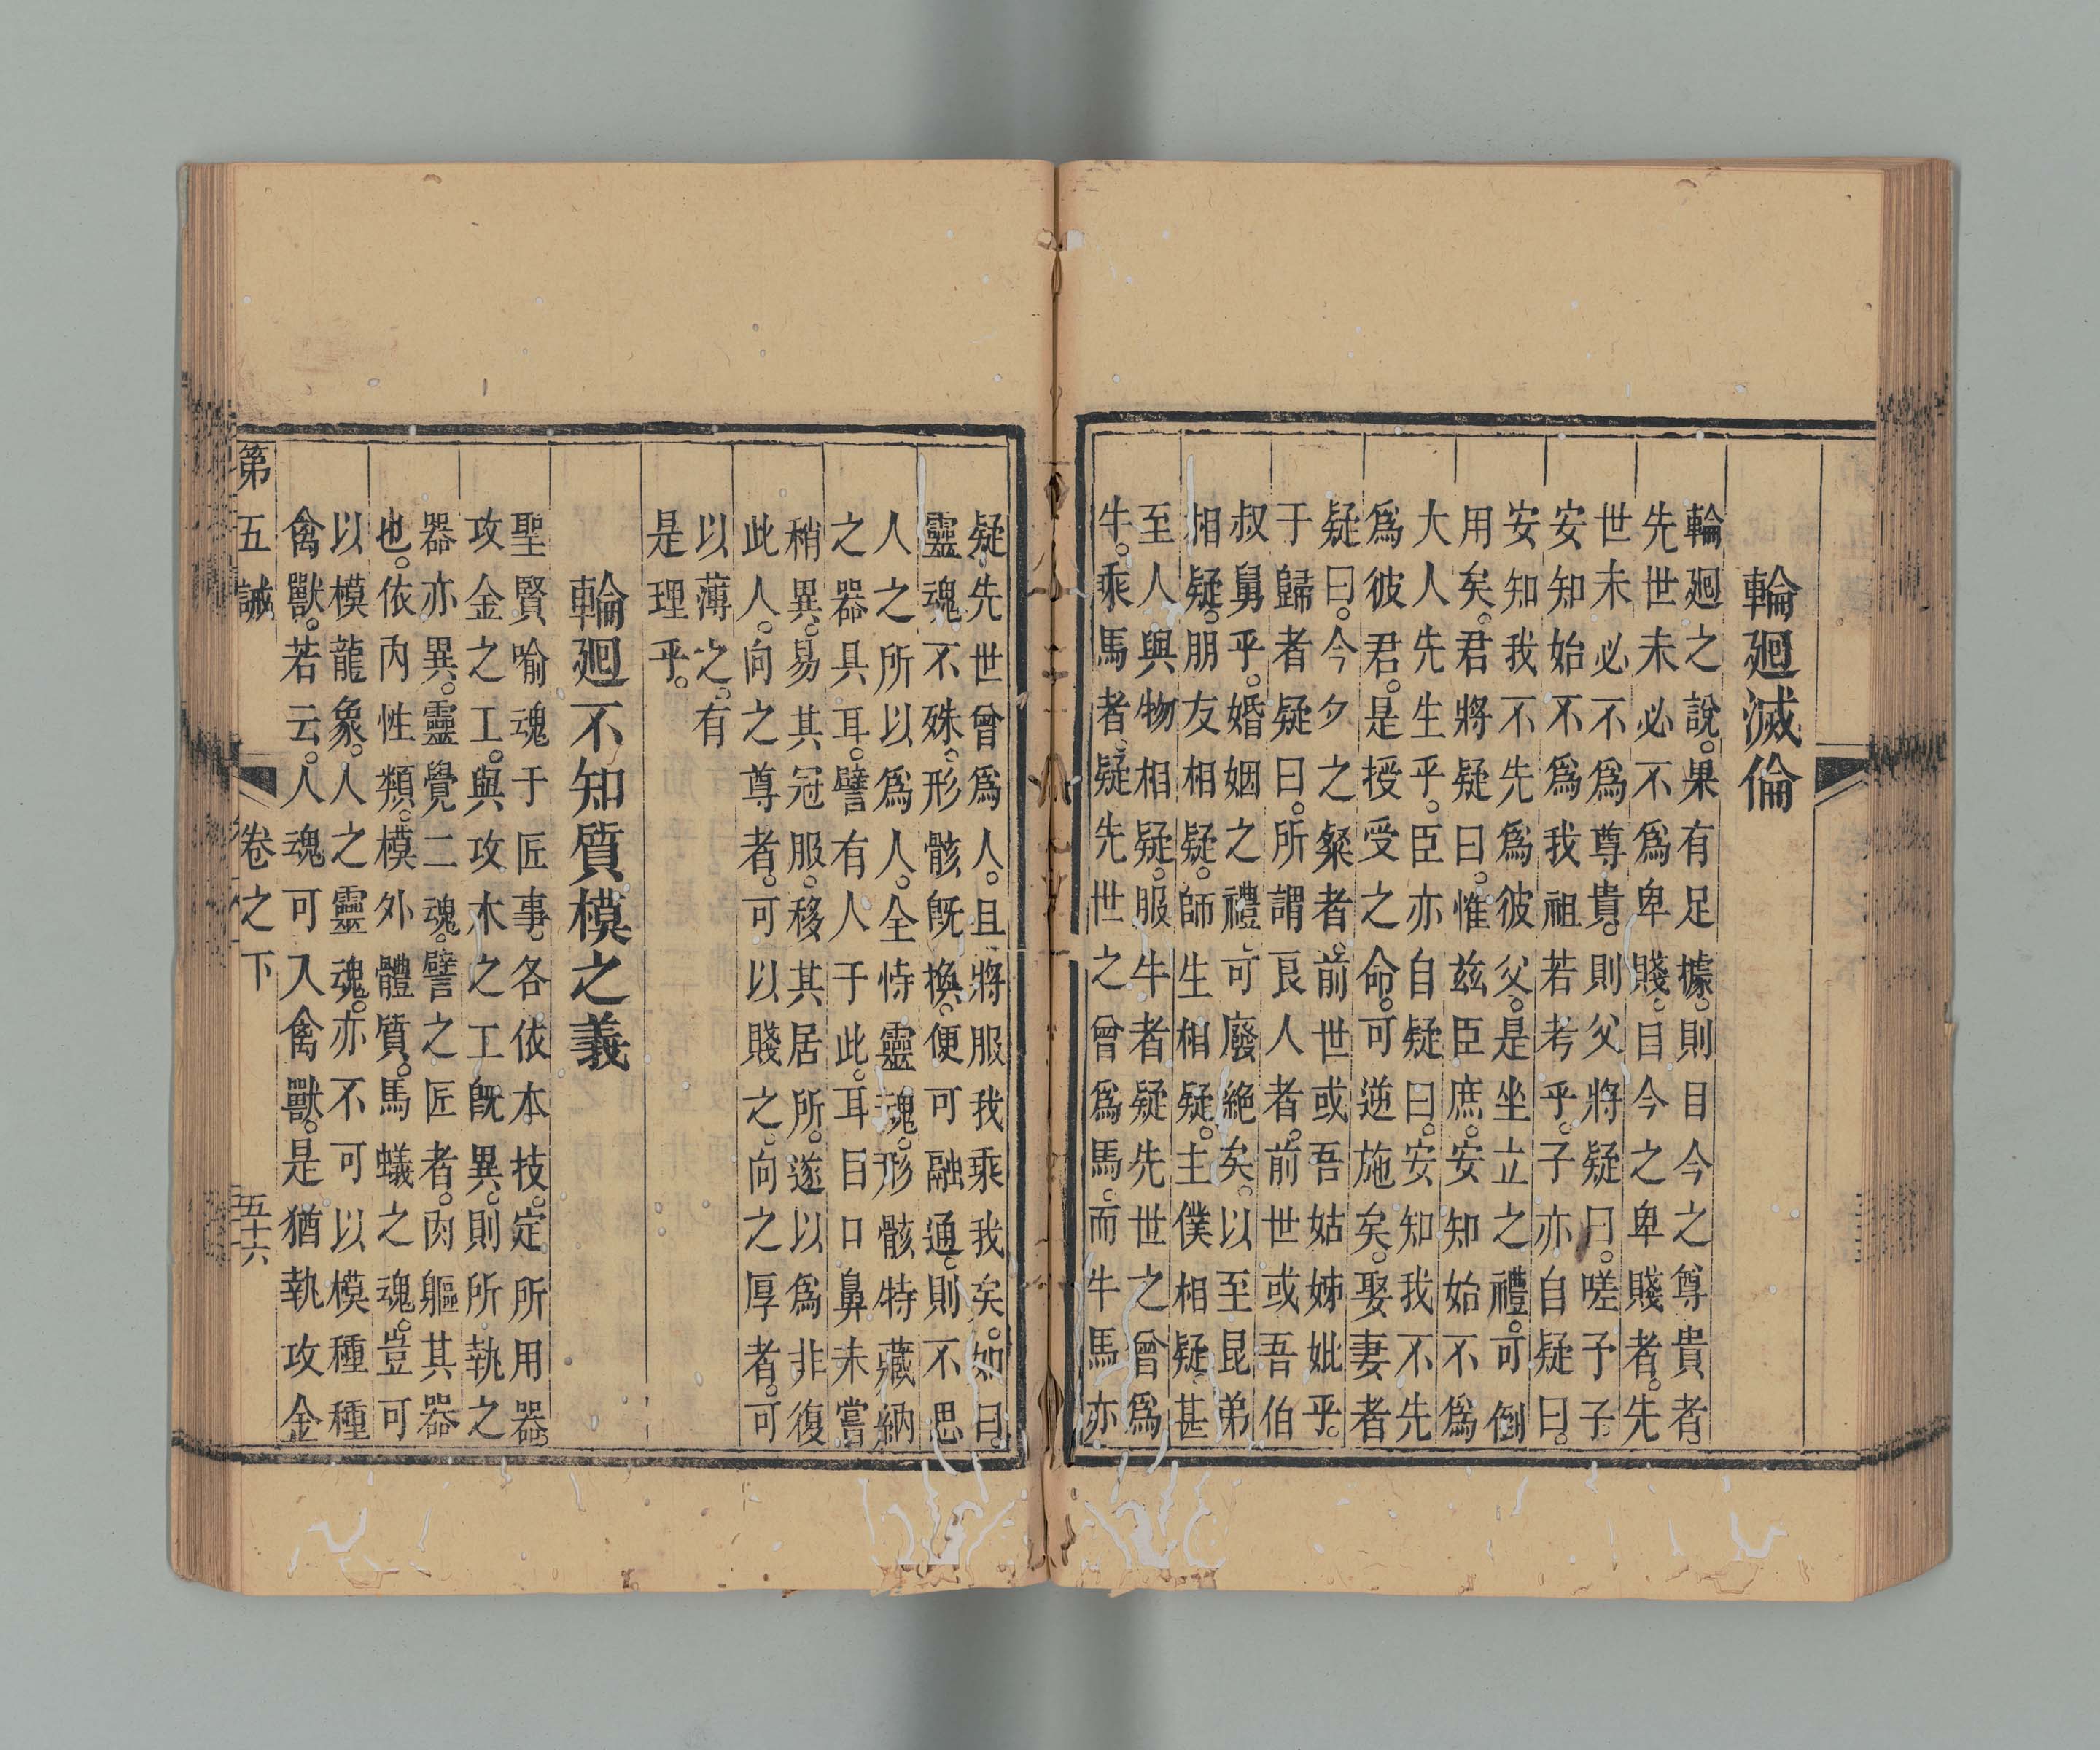 輪廻滅倫
輪廻之說。果有足據。則目今之尊貴者。
先世未必不爲卑賤。目今之卑賤者。先
世未必不爲尊貴。則父將疑曰。嗟予子。
安知始不爲我祖若考乎。子亦自疑曰。
安知我不先爲彼父。是坐立之禮。可倒
用矣。君將疑曰。惟玆臣庶。安知始不爲
大人先生乎。臣亦自疑曰。安知我不先
爲彼君。是授受之命。可逆施矣。娶妻者
疑曰。今夕之粲者。前世或吾姑姊妣乎。
于歸者疑曰。所謂良人者。前世或吾伯
叔舅乎。婚姻之禮。可廢絕矣。以至昆弟
相疑。朋友相疑。師生相疑。主僕相疑。甚
至人與物相疑。服牛者疑先世之曾爲
牛。乘馬者。疑先世之曾爲馬。而牛馬亦
疑先世曾爲人。且將服我乘我矣。如曰。
靈魂不殊。形骸旣換。便可融通。則不思
人之所以爲人。全恃靈魂。形骸特藏納
之器具耳。譬有人于此。耳目口鼻未嘗
稍異。易其冠服。移其居所。遂以爲非復
此人。向之尊者。可以賤之。向之厚者。可
以薄之。有
是理乎。
輪廻不知質模之義
聖賢喻魂于匠事。各依本技。定所用器。
攻金之工。與攻木之工旣異。則所執之
器亦異。靈覺二魂。譬之匠者。肉軀其器
也。依內性類。模外體質。馬蟻之魂。豈可
以模龍象。人之靈魂。亦不可以模種種
禽獸。若云。人魂可入禽獸。是猶執攻金
第五誡 卷之下 五十六